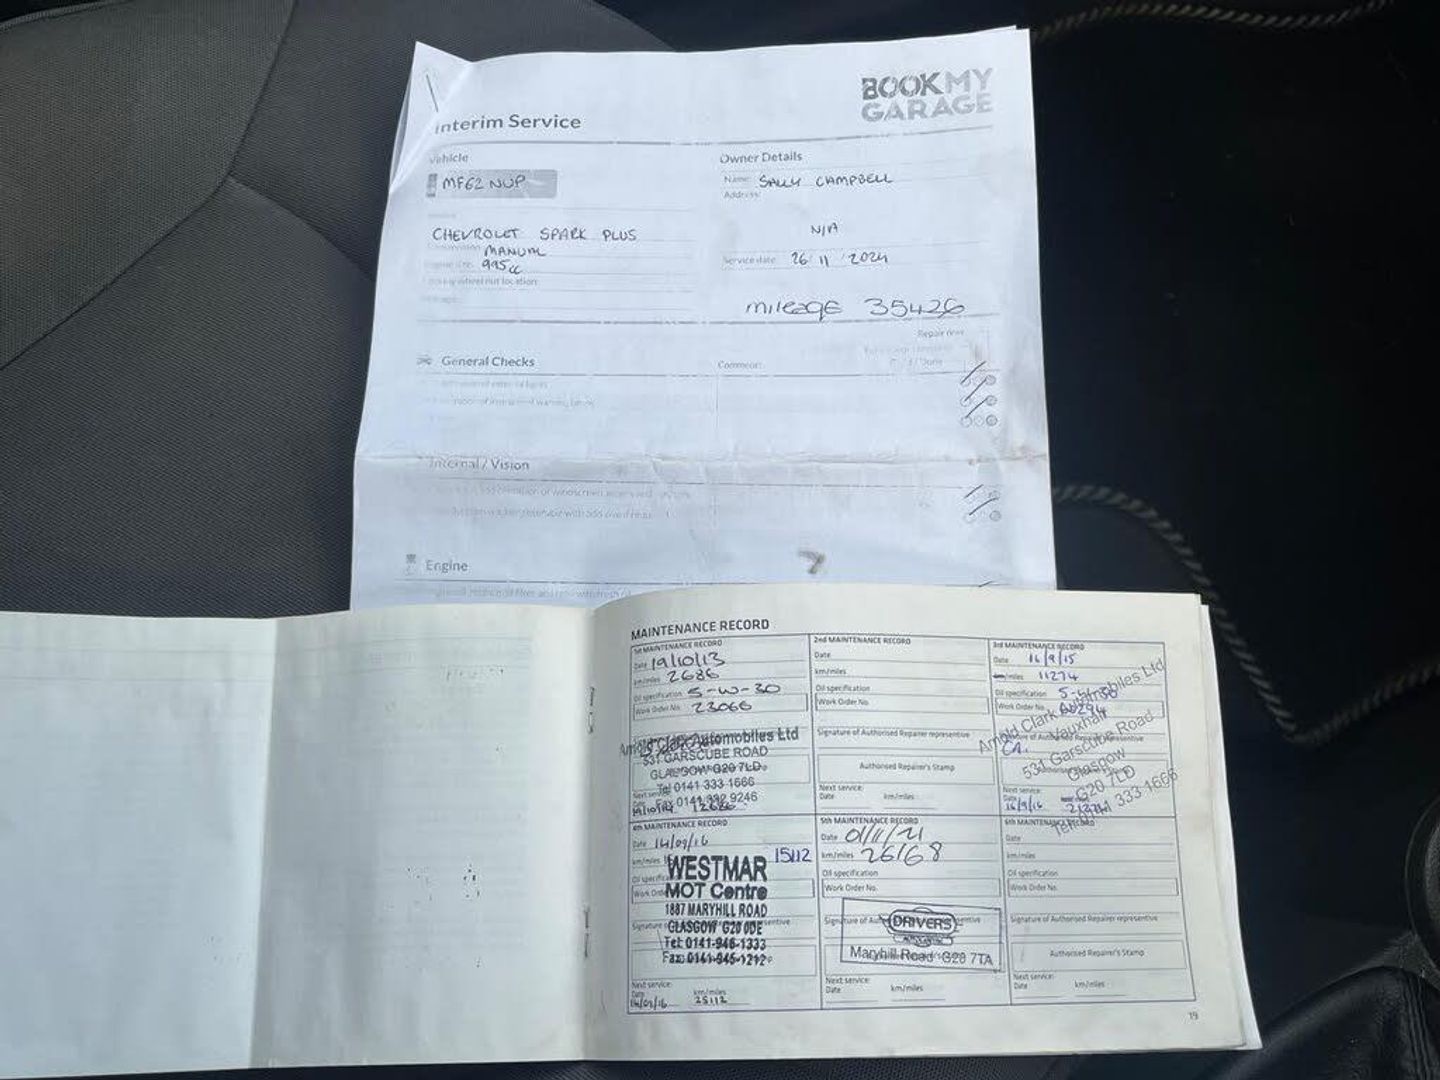 BOOKMY
GARAGE
Interim Service
Vehicle
Owner Details
MF62 NUP
Name: SALLY CAMPBELL
Address:
CHEVROLET SPARK PLUS
N/A
MANUAL
995cc
Service date: 26 11 2024
wheel nut location:
mileage 35426
General Checks
Comment:
Internal / Vision
Engine
MAINTENANCE RECORD
1st MAINTENANCE RECORD
Date 19/10/13
km/miles 2686
Oil specification 5-W-30
Work Order No. 23066
Arnold Clark Automobiles Ltd
531 GARSCUBE ROAD
GLASGOW G20 7LD.
Tel 0141 333 1666
Fax 0141 332 9246
Next service:
Date 19/10/14 12686
2nd MAINTENANCE RECORD
Date
km/miles
Oil specification
Work Order No.
Signature of Authorised Repairer representive
Authorised Repairer's Stamp
Next service:
Date km/miles
3rd MAINTENANCE RECORD
Date 16/9/15
km/miles 11274
Oil specification
Work Order No.
Arnold Clark Automobiles Ltd
Vauxhall
531 Garscube Road
Glasgow
G20 7LD
Tel: 0141 333 1666
Next service:
Date 16/9/16
4th MAINTENANCE RECORD
Date 14/09/16
km/miles 15112
WESTMAR
MOT Centre
1887 MARYHILL ROAD
GLASGOW G20 0DE
Tel: 0141-946-1333
Fax: 0141-945-1212
Next service:
Date km/miles
25112
5th MAINTENANCE RECORD
Date 01/11/21
km/miles 26168
Oil specification
Work Order No.
DRIVERS
Maryhill Road G20 7TA
Next service:
Date km/miles
6th MAINTENANCE RECORD
Date
km/miles
Oil specification
Work Order No.
Signature of Authorised Repairer representive
Authorised Repairer's Stamp
Next service:
Date km/miles
19